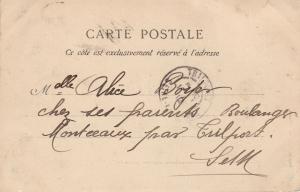 CARTE POSTALE
Ce côté est exclusivement réservé à l'adresse
Mdlle Alice
chez ses parents Boulanger
Montceaux par Trilport
S et M